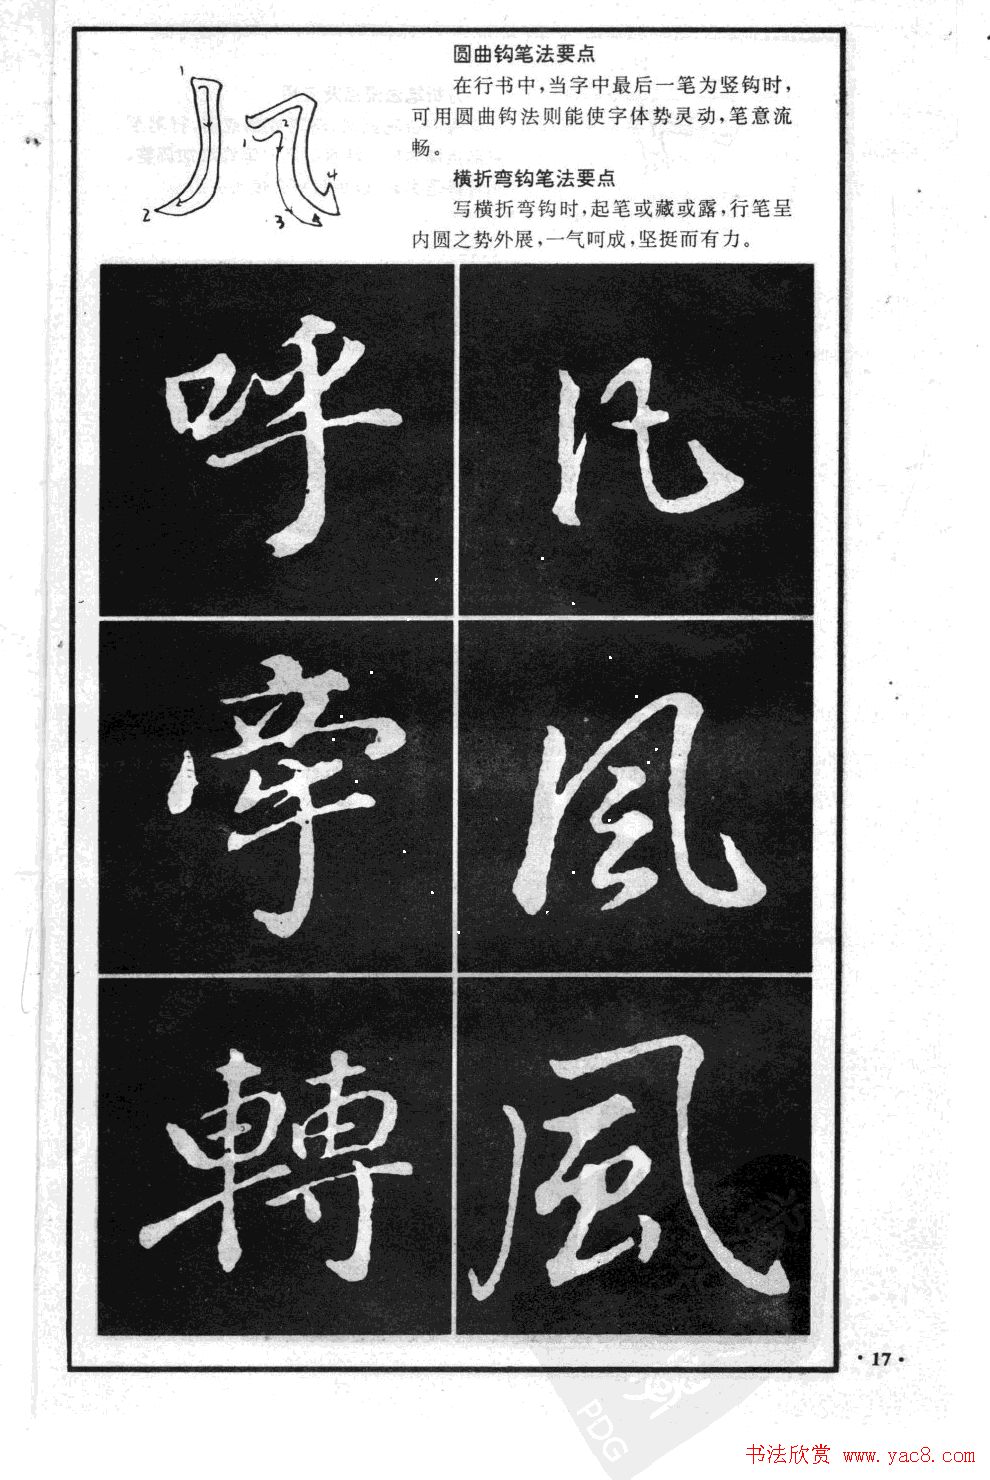 圆曲钩笔法要点
在行书中,当字中最后一笔为竖钩时,
可用圆曲钩法则能使字体势灵动,笔意流
畅。
横折弯钩笔法要点
写横折弯钩时,起笔或藏或露,行笔呈
内圆之势外展,一气呵成,坚挺而有力。
1
2
1
2
3
4
5
呼 凡
牵 风
轉 風
·17·
PDG
书法欣赏 www.yac8.com